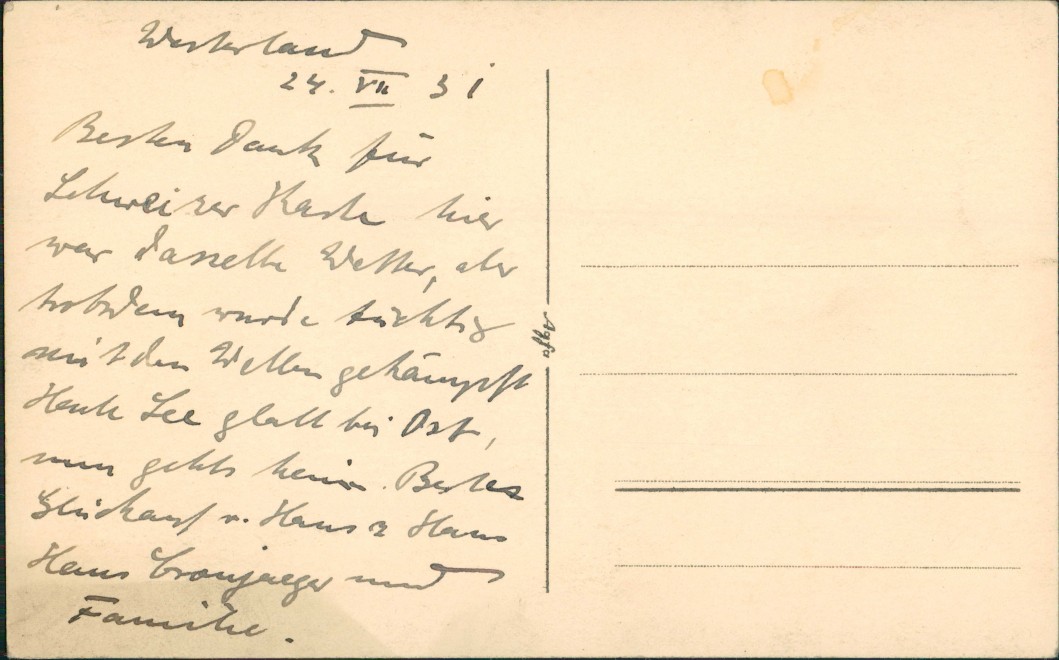 Westerland
24. VII 31
Besten Dank für
Schweizer Karte hier
war dasselbe Wetter, aber
trotzdem wurde tüchtig
mit den Wellen gekämpft
Heute See glatt bei Ost,
nun gehts heim. Bestes
Glückauf v. Haus z Haus
Hans Cronjaeger und
Familie.
Agfa